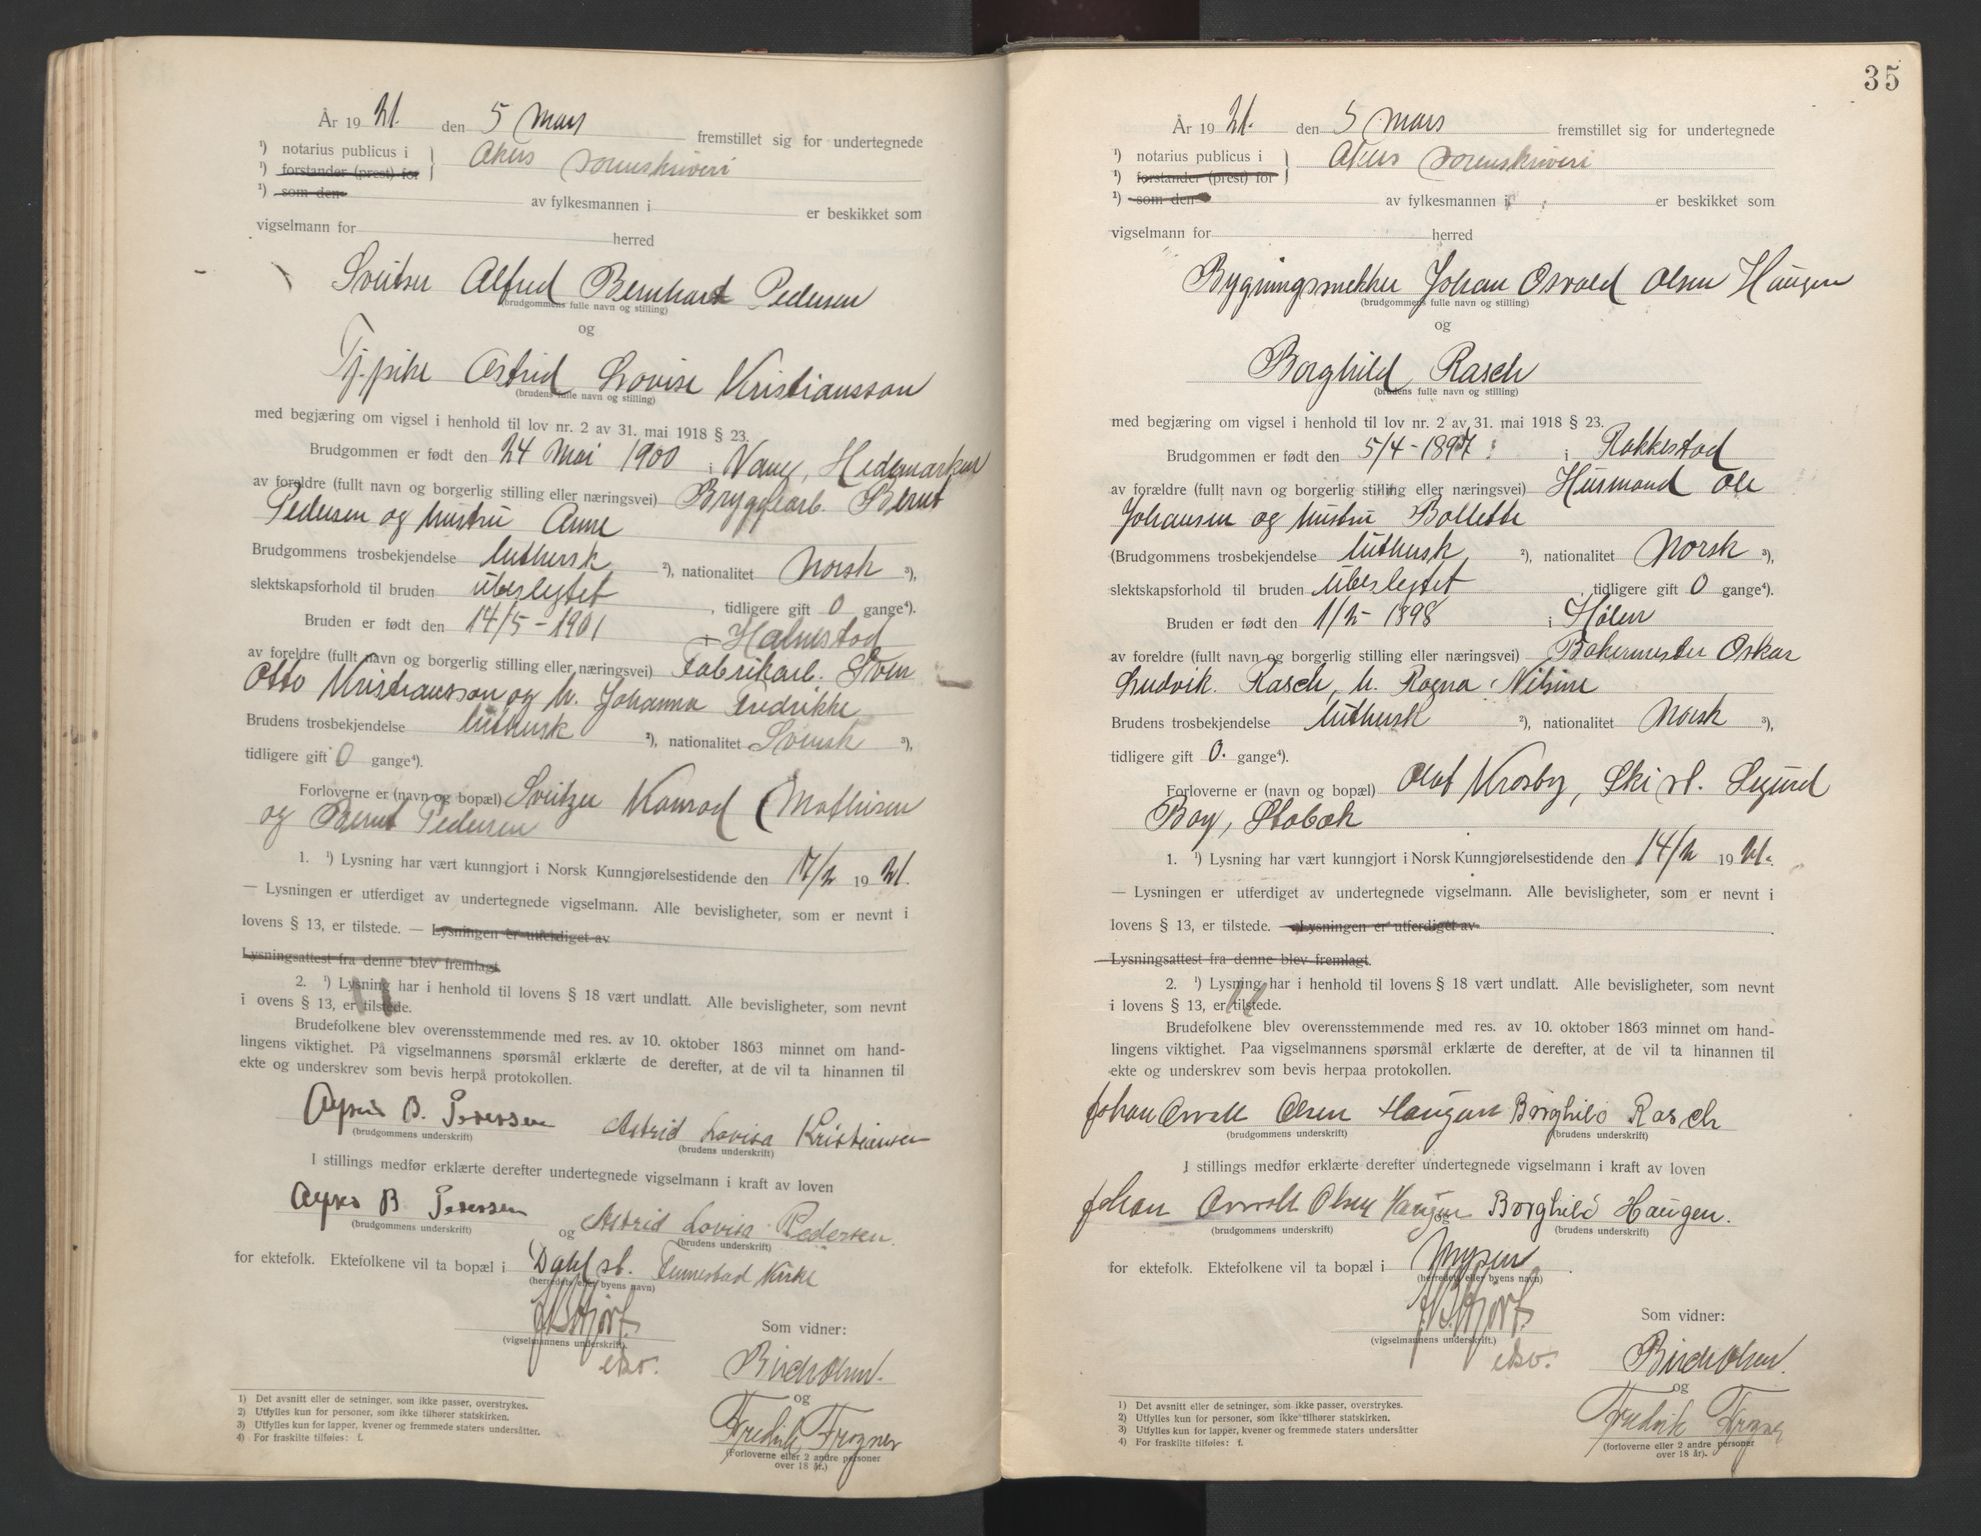 År 1921. den 5 Mars fremstillet sig for undertegnede
¹) notarius publicus i Akers sorenskriveri
¹) forstander (prest) for
¹) som den av fylkesmannen i er beskikket som
vigselmann for herred
Sveitser Alfred Bernhart Pedersen
(brudgommens fulle navn og stilling)
og
Tj.pike Astrid Lovise Kristiansson
(brudens fulle navn og stilling)
med begjæring om vigsel i henhold til lov nr. 2 av 31. mai 1918 § 23.
Brudgommen er født den 24 Mai 1900 i Vang, Hedemarken
av foreldre (fullt navn og borgerlig stilling eller næringsvei) Bryggearb. Bernt
Pedersen og hustru Anne
Brudgommens trosbekjendelse luthersk ²), nationalitet Norsk ³),
slektskapsforhold til bruden ubeslegtet, tidligere gift 0 gange⁴).
Bruden er født den 14/5 - 1901 i Halmstad
av foreldre (fullt navn og borgerlig stilling eller næringsvei) Fabrikarb. Sven
Otto Kristiansson og h. Johanna Fredrikke
Brudens trosbekjendelse luthersk ²), nationalitet Svensk ³),
tidligere gift 0 gange⁴).
Forloverne er (navn og bopæl) Sveitzer Konrad Mathisen
og Bernt Pedersen
1. ¹) Lysning har vært kunngjort i Norsk Kunngjørelsestidende den 17/2 1921.
— Lysningen er utferdiget av undertegnede vigselmann. Alle bevisligheter, som er nevnt i
lovens § 13, er tilstede. — Lysningen er utferdiget av
Lysningsattest fra denne blev fremlagt.
2. ¹) Lysning har i henhold til lovens § 18 vært undlatt. Alle bevisligheter, som nevnt
i ovens § 13, er tilstede.
Brudefolkene blev overensstemmende med res. av 10. oktober 1863 minnet om hand-
lingens viktighet. På vigselmannens spørsmål erklærte de derefter, at de vil ta hinannen til
ekte og underskrev som bevis herpå protokollen.
Alfred B. Pedersen Astrid Lovisa Kristiansen
(brudgommens underskrift) (brudens underskrift)
I stillings medfør erklærte derefter undertegnede vigselmann i kraft av loven
Alfred B Pedersen og Astrid Lovisa Pedersen.
(brudgommens underskrift) (brudens underskrift)
for ektefolk. Ektefolkene vil ta bopæl i Dahl st. Kirke
(herredets eller byens navn)
(vigselmannens underskrift). Som vidner:
Birch Olsen.
og
Fredrik Frogner
(Forloverne eller 2 andre personer
over 18 år.)
1) Det avsnitt eller de setninger, som ikke passer, overstrykes.
2) Utfylles kun for personer, som ikke tilhører statskirken.
3) Utfylles kun for lapper, kvener og fremmede staters undersåtter.
4) For fraskilte tilføies: f.
35
År 1921. den 5 Mars fremstillet sig for undertegnede
¹) notarius publicus i Akers sorenskriveri
¹) forstander (prest) for
¹) som den av fylkesmannen i er beskikket som
vigselmann for herred
Bygningssnekker Johan Osvald Olsen Haugen
(brudgommens fulle navn og stilling)
og
Borghild Rasch
(brudens fulle navn og stilling)
med begjæring om vigsel i henhold til lov nr. 2 av 31. mai 1918 § 23.
Brudgommen er født den 5/4 - 1897 i Rakkestad
av forældre (fullt navn og borgerlig stilling eller næringsvei) Husmand Ole
Johansen og hustru Bollette
(Brudgommens trosbekjendelse luthersk, ²), nationalitet Norsk ³),
slektskapsforhold til bruden ubeslegtet, tidligere gift 0 gange⁴).
Bruden er født den 1/2 - 1898 i Hølen
av foreldre (fullt navn og borgerlig stilling eller næringsvei) Bakermester Oskar
Ludvik Rasch, h. Ragna Nilsine
Brudens trosbekjendelse luthersk ²), nationalitet Norsk ³),
tidligere gift 0. gange⁴).
Forloverne er (navn og bopæl) Olaf Krosby, Ski st. Sigurd
Boy, Stabæk
1. ¹) Lysning har vært kunngjort i Norsk Kunngjørelsestidende den 14/2 1921.
— Lysningen er utferdiget av undertegnede vigselmann. Alle bevisligheter, som er nevnt i
lovens § 13, er tilstede. — Lysningen er utferdiget av
Lysningsattest fra denne blev fremlagt.
2. ¹) Lysning har i henhold til lovens § 18 vært undlatt. Alle bevisligheter, som nevnt
i lovens § 13, er tilstede.
Brudefolkene blev overensstemmende med res. av 10. oktober 1863 minnet om hand-
lingens viktighet. Paa vigselmannens spørsmål erklærte de derefter, at de vil ta hinannen til
ekte og underskrev som bevis herpaa protokollen.
Johan Osvald Olsen Haugen Borghild Rasch
(brudgommens underskrift) (brudens underskrift)
I stillings medfør erklærte derefter undertegnede vigselmann i kraft av loven
Johan Osvald Olsen Haugen og Borghild Haugen.
(brudgommens underskrift) (brudens underskrift)
for ektefolk. Ektefolkene vil ta bopæl i Mysen
(herredets eller byens navn)
(vigselmannens underskrift.) Som vidner:
Birch Olsen.
og
Fredrik Frogner
(forloverne eller 2 andre personer
over 18 år).
1) Det avsnitt eller de setninger, som ikke passer, overstrykes.
2) Utfylles kun for personer, som ikke tilhører statskirken.
3) Utfylles kun for lapper, kvener og fremmede staters undersåtter
4) For fraskilte tilføies: f.